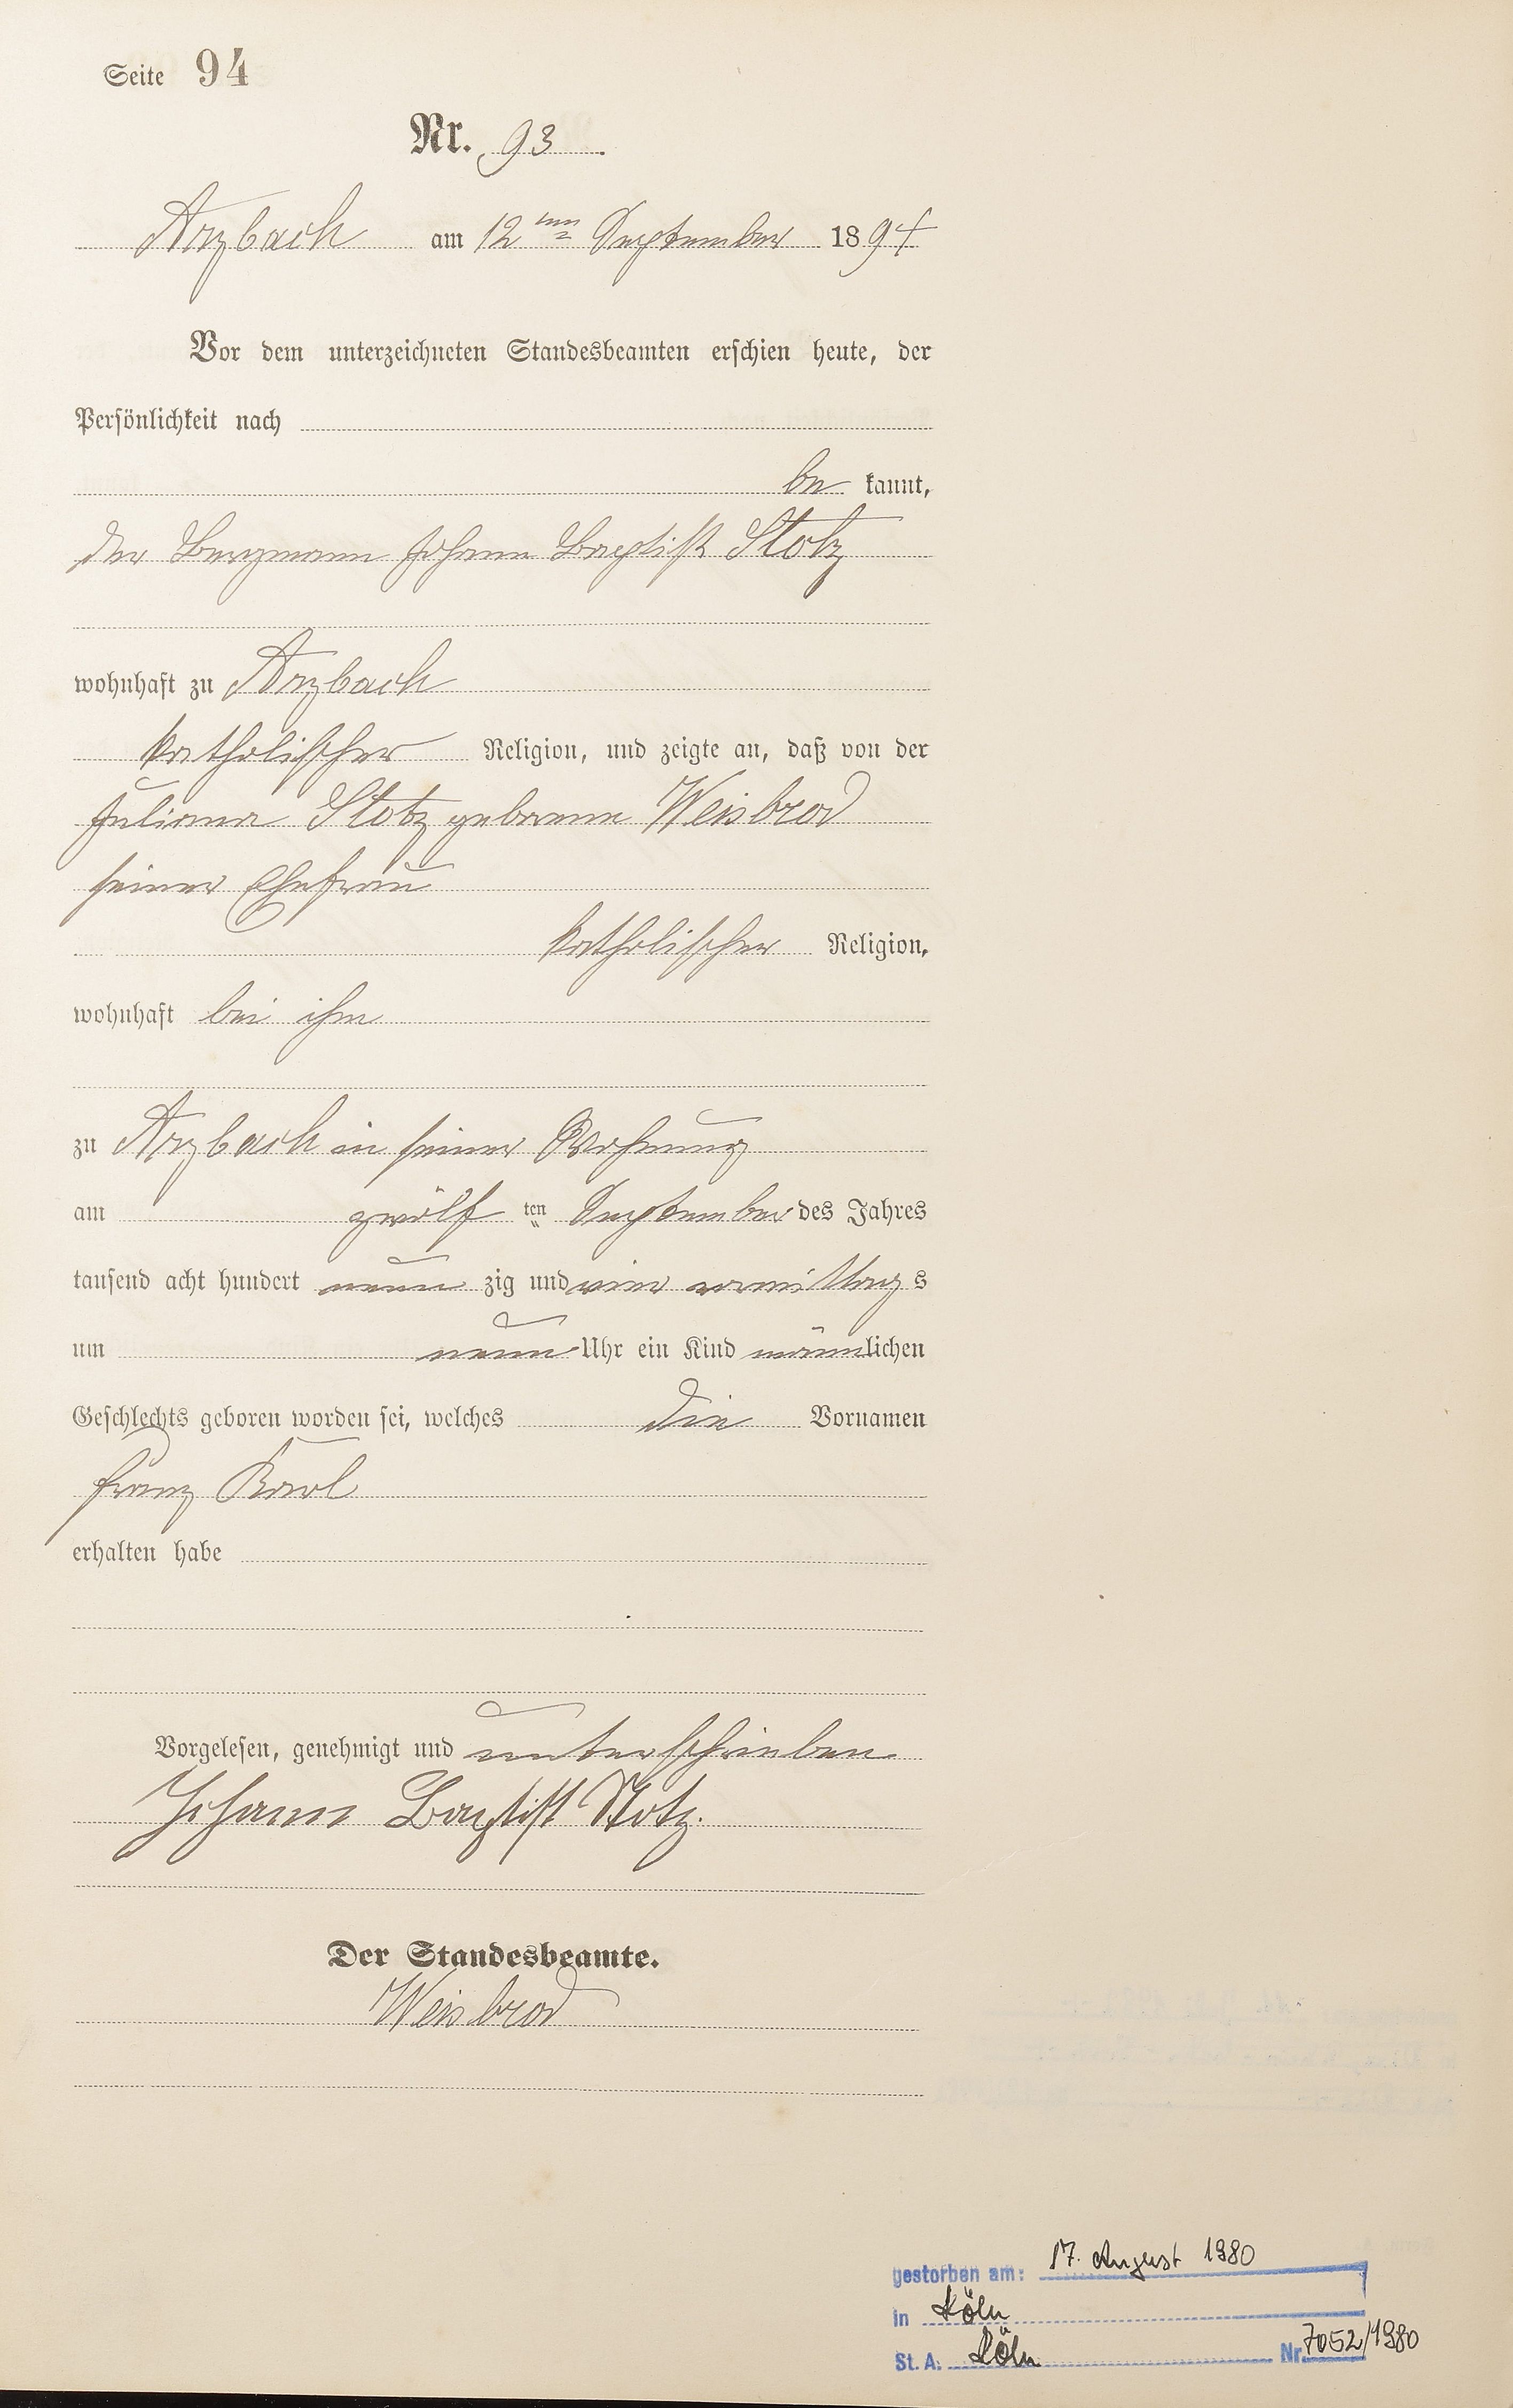 Seite 94
Nr. 93.
Arzbach am 12ten September 1894
Vor dem unterzeichneten Standesbeamten erschien heute, der
Persönlichkeit nach
be kannt,
der Bergmann Johann Baptist Stotz
wohnhaft zu Arzbach
katholischer Religion, und zeigte an, daß von der
Juliana Stotz geborene Weisbrod
seiner Ehefrau
katholischer Religion,
wohnhaft bei ihm
zu Arzbach in seiner Wohnung
am zwölf ten September des Jahres
tausend acht hundert neun zig und vier vormittags
um neun Uhr ein Kind männlichen
Geschlechts geboren worden sei, welches die Vornamen
Franz Karl
erhalten habe
Vorgelesen, genehmigt und unterschrieben
Johann Baptist Stotz.
Der Standesbeamte.
Weisbrod
gestorben am: 17. August 1980
in Köln
St. A. Köln Nr. 7052/1980